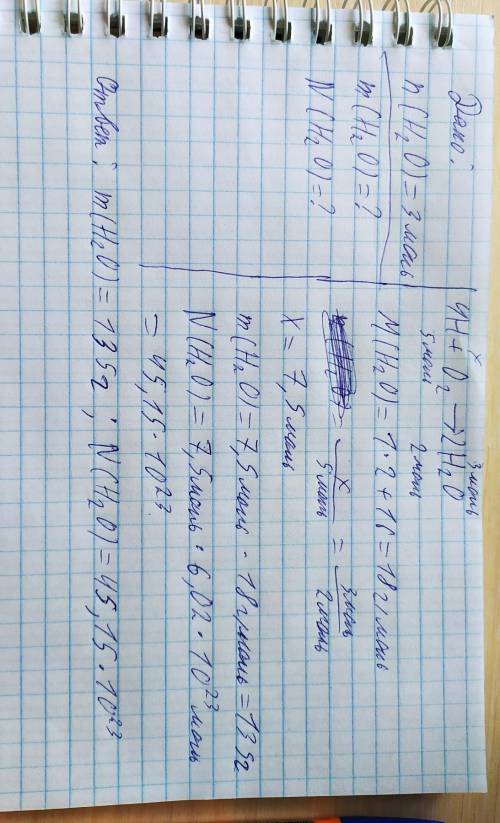 Дано:
n(H₂O) = 3 моль
m(H₂O) = ?
N(H₂O) = ?
x 3 моль
4H + O₂ → 2H₂O
5 моль 2 моль
M(H₂O) = 1 · 2 + 16 = 18 г/моль
x / 5 моль = 3 моль / 2 моль
x = 7,5 моль
m(H₂O) = 7,5 моль · 18 г/моль = 135г
N(H₂O) = 7,5 моль · 6,02 · 10²³ моль
= 45,15 · 10²³
Ответ: m(H₂O) = 135г ; N(H₂O) = 45,15 · 10²³